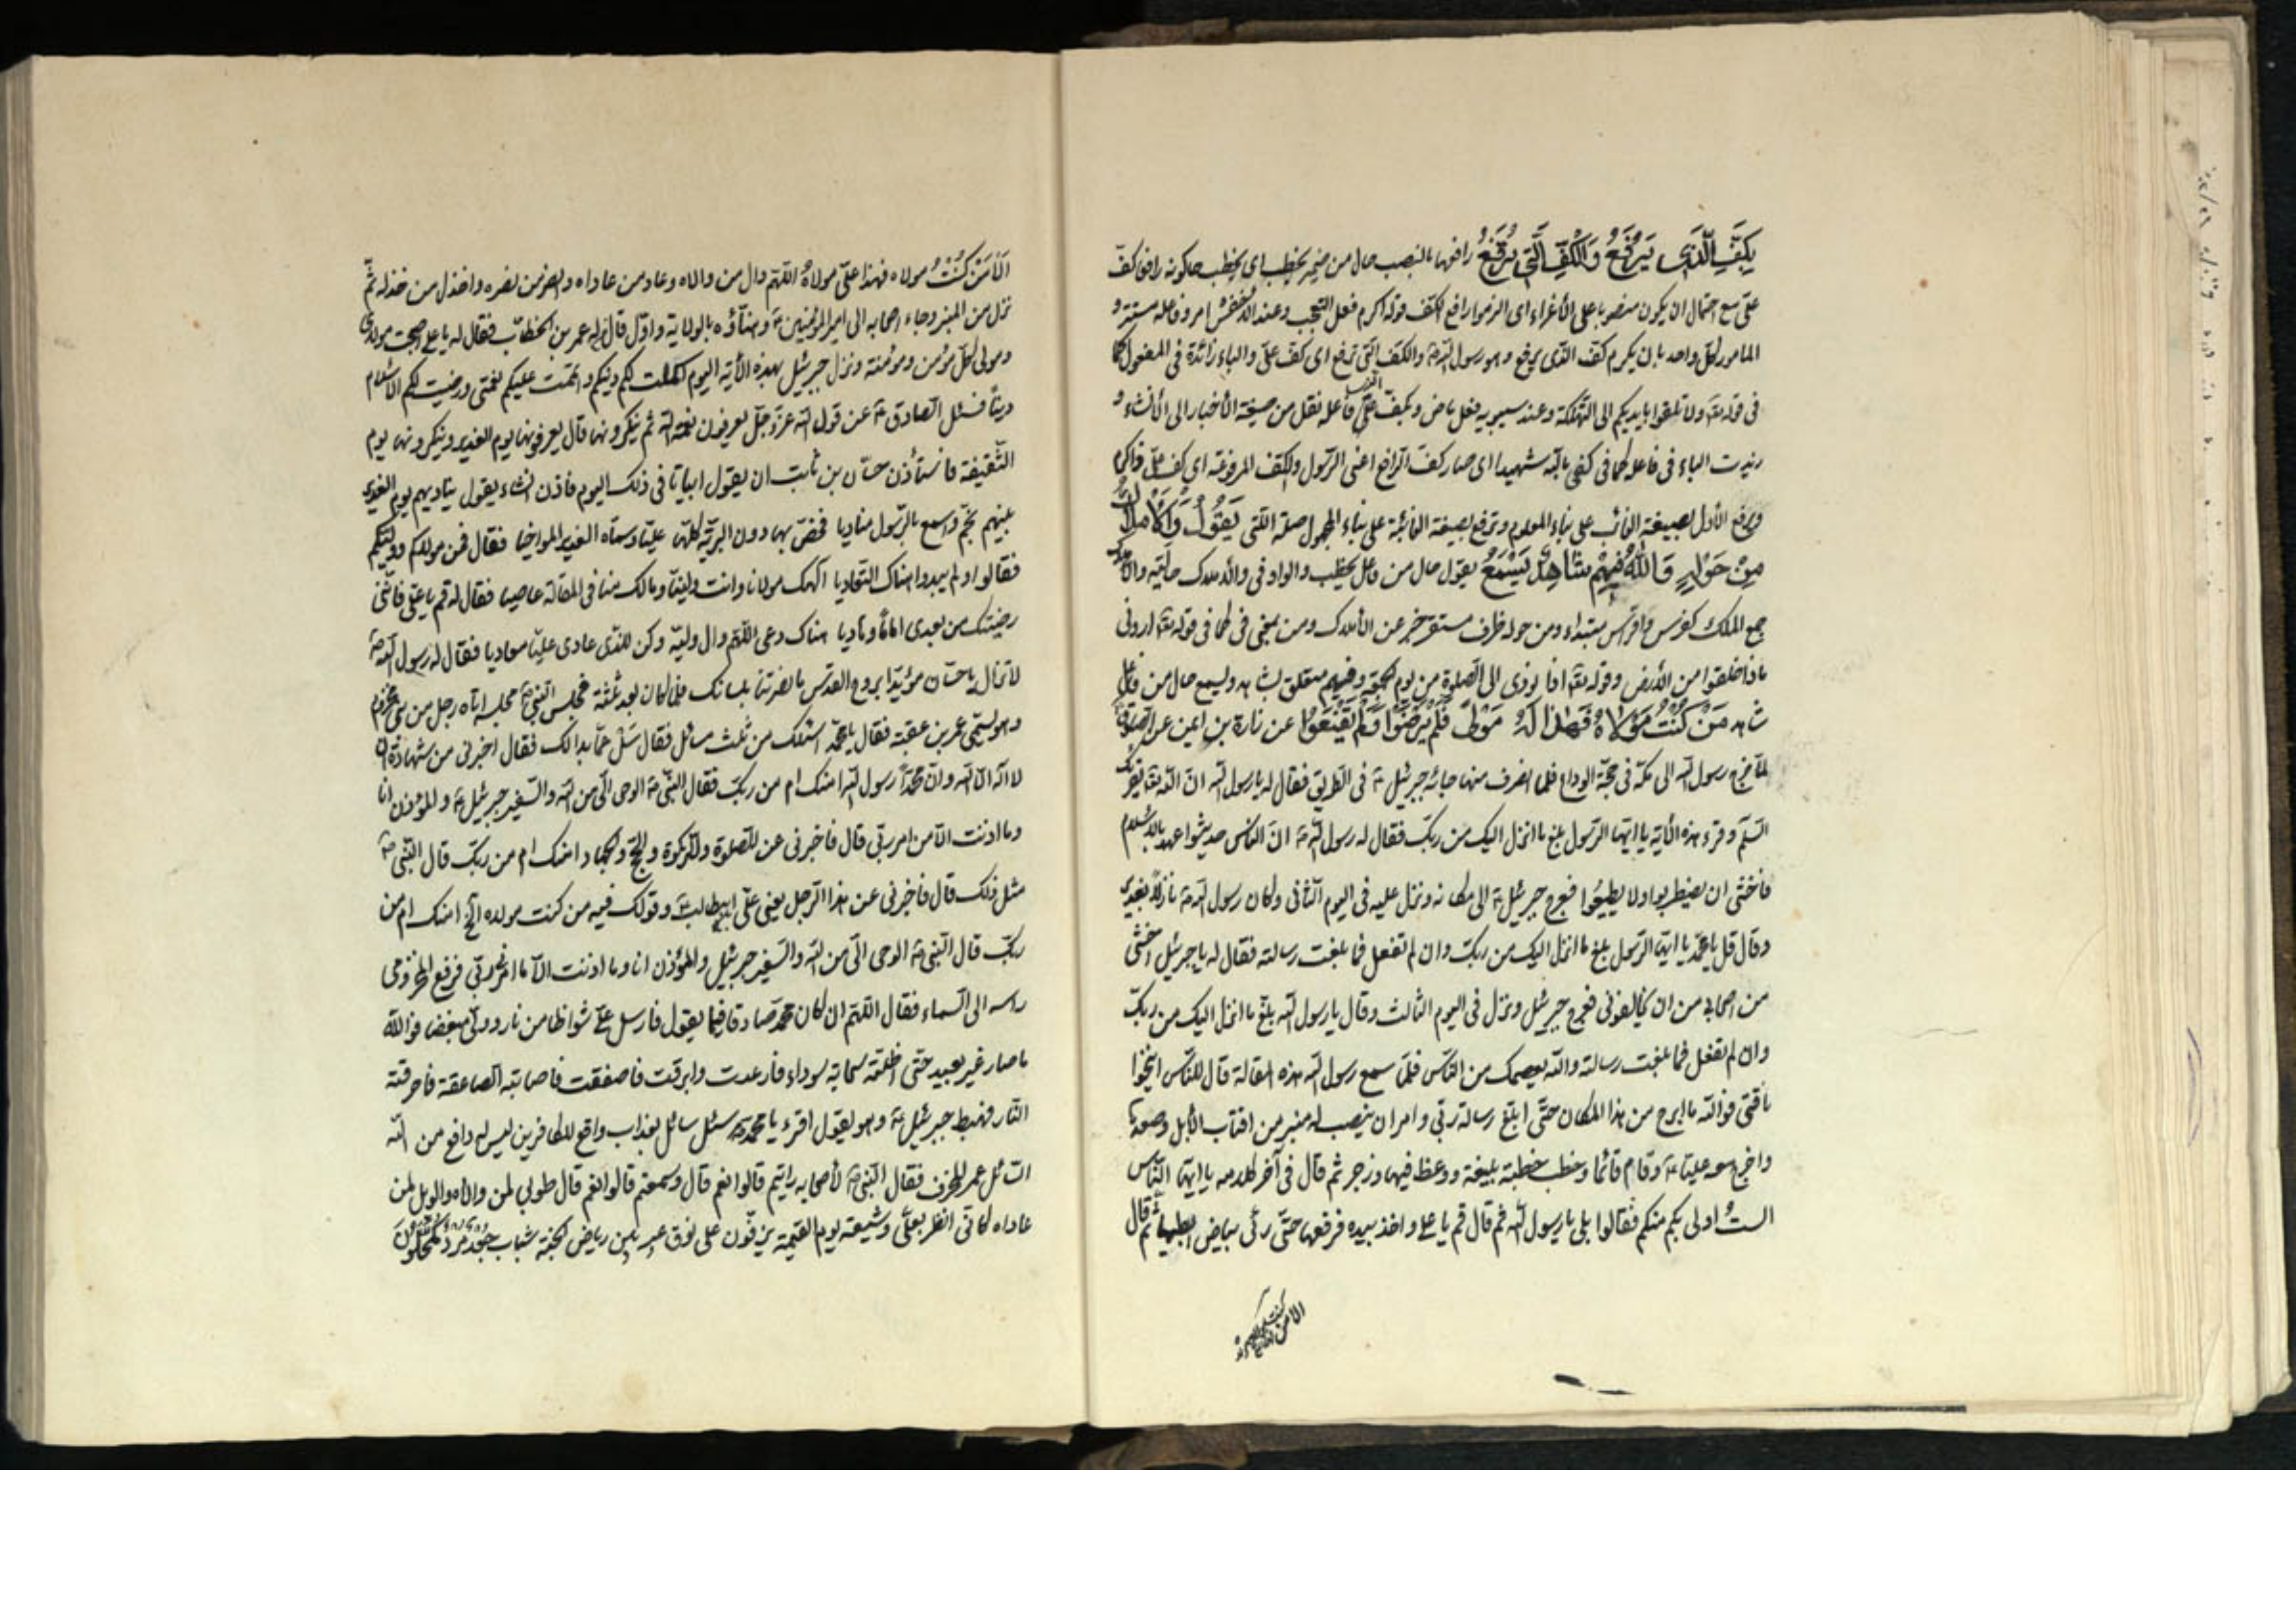 بِكَفِّ الَّذِی يَرْفَعُ وَالْكَفِّ الَّتِی تُرْفَعُ رافعها بالنصب حال من ضمير يخطب اى يخطب حالكونه رافع كفّ
علىّ مع احتمال ان يكون منصوبا على الأغراء اى الزموا رافع الكف قوله اكرم فعل التعجب وعند الأخفش امر وفاعله مستتر و
المامور لكلّ واحد بان يكرم كفّ الّذى يرفع و هو رسول الله ص والكفّ الّتى ترفع اى كف علىّ والباء زائدة فى المفعول كما
فى قوله تعه ولا تلقوا بايديكم الى التّهلكة وعند سيبويه فعل ماض و بكفّ علىّ فاعله نقل من صيغة الأخبار الى الأنشاء و
زيدت الباء فى فاعله كما فى كفى بالله شهيدا اى صار كفّ الرّافع اعنى الرّسول والكف المرفوعة اى كف علىّ ذاكرم
ويرفع الأوّل بصيغة الغائب على بناء المعلوم وترفع بصيغة الغائبة على بناء المجهول صلة الّتى يَقُولُ وَالْأَمْلَاكُ
مِنْ حَوْلِهِ وَاللّٰهُ فِيهِمْ شَاهِدٌ يَسْمَعُ يقول حال من فاعل يخطب والواو فى والأملاك حاليّه والأملاك
جمع الملك كفرس وافراس مبتداء ومن حوله ظرف مستقر خبر عن الأملاك ومن بمعنى فى كما فى قوله تعه ارونى
ماذا خلقوا من الأرض وقوله تعه اذا نودى الى الصلوة من يوم الجمعة وفيهم متعلق بشاهد ويسمع حال من فاعل
شاهد مَنْ كُنْتُ مَوْلَاهُ فَهٰذَا لَهُ مَوْلًى فَلَمْ يَرْضَوْا وَلَمْ يَقْنَعُوا عن زرارة بن اعين عن الصّادق ع
لمّا خرج رسول الله الى مكّة فى حجّة الوداع فلمّا انصرف منها جائه جبرئيل ع فى الطريق فقال له يا رسول الله انّ الله تعه يقرئك
السّلم وقرء هذه الأية يا ايّها الرّسول بلّغ ما انزل اليك من ربّك فقال له رسول الله ص انّ النّاس حديثوا عهد بالأسلام
فاخشى ان يضطربوا ولا يطيعوا فعرج جبرئيل ع الى مكانه ونزل عليه فى اليوم الثّانى وكان رسول الله ص نازلاً بغدير
وقال قل يا محمّد يا ايّها الرّسول بلّغ ما انزل اليك من ربّك وان لم تفعل فما بلغت رسالته فقال له يا جبرئيل اخشى
من اصحابى من ان يخالفونى فعرج جبرئيل ونزل فى اليوم الثالث وقال يا رسول الله بلّغ ما انزل اليك من ربّك
وان لم تفعل فما بلغت رسالته والله يعصمك من النّاس فلمّا سمع رسول الله هذه المقالة قال للنّاس انيخوا
ناقتى فوالله ما ابرح من هذا المكان حتّى ابلّغ رسالة ربّى وامر ان ينصب له منبر من اقتاب الأبل وصعدها
واخرج معه عليّا ع وقام قائما وخطب خطبة بليغة ووعظ فيها وزجر ثم قال فى آخر كلامه يا ايّها النّاس
الستُ اولى بكم منكم فقالوا بلى يا رسول الله ثم قال قم يا على واخذ بيده فرفعها حتّى رئى بياض ابطيهما ثم قال
الا من كنت
الَا مَنْ كُنْتُ مولاه فهذا علىّ مولاهُ اللّهمّ وال من والاه وعاد من عاداه وانصر من نصره واخذل من خذله ثمّ
نزل من المنبر وجاء اصحابه الى امير المؤمنين ع وهنّأوه بالولاية واوّل قال له عمر بن الخطّاب فقال له يا على اصبحت مولاى
ومولى كلّ مؤمن ومؤمنة ونزل جبرئيل بهذه الأية اليوم اكملت لكم دينكم واتممت عليكم نعمتى ورضيت لكم الأسلام
ديناً فسئل الصادق ع عن قول الله عزّ وجلّ يعرفون نعمة الله ثم ينكرونها قال يعرفونها يوم الغدير وينكرونها يوم
السّقيفة فاستأذن حسّان بن ثابت ان يقول ابياتا فى ذلك اليوم فاذن انشاء يقول يناديهم يوم الغدير
نبيّهم بخمّ واسمع بالرّسول مناديا فخصّ بها دون البريّة كلّها عليّا وسمّاه الغدير المواخيا فقال فمن مولاكم ووليّكم
فقالوا ولم يبدوا هناك التّعاديا الهك مولانا وانت وليّنا ومالك منّا فى المقالة عاصيا فقال له قم يا علىّ فانّنى
رضيتك من بعدى اماما وهاديا هناك دعى اللّهمّ وال وليّه وكن للّذى عادى عليّا معاديا فقال له رسول الله ص
لا تزال يا حسّان مؤيّدا بروح القدس ما نصرتنا بلسانك فلمّا كان بعد ثلثة فجلس النّبىّ ص مجلسه اتاه رجل من بنى مخزوم
وهو يسمّى عمر بن عقبة فقال يا محمّد اسئلك من ثلث مسائل فقال سل عمّا بدالك فقال اخبرنى من شهادة ان
لا اله الّا الله وانّ محمّدًا رسول الله امنك ام من ربّك فقال النّبىّ ص الوحى الىّ من الله والسّفير جبرئيل ع والمؤذن انا
وما اذنت الّا من امر ربّى قال فاخبرنى عن الصّلوة والزّكوة والحجّ والجهاد امنك ام من ربّك قال النّبى ص
مثل ذلك قال فاخبرنى عن هذا الرّجل يعنى علىّ ابيطالب ع وقولك فيه من كنت مولاه الخ امنك ام من
ربّك قال النّبىّ ص الوحى الىّ من الله والسّفير جبرئيل والمؤذن انا وما اذنت الّا ما امرنى ربّى فرفع المخزومى
راسه الى السّماء فقال اللّهمّ ان كان محمّد صادقا فيما يقول فارسل علىّ شواظا من نار وولّى مبغضا فوالله
ما صار غير بعيد حتّى اظلّته سحابة سوداء فارعدت وابرقت فاصعقت فاصابته الصاعقة فاحرقته
النّار فهبط جبرئيل ع وهو يقول اقرء يا محمّد ص سئل سائل بعذاب واقع للكافرين ليس له دافع من الله
السّائل عمر المحرف فقال النّبىّ ص لأصحابه رايتم قالوا نعم قال وسمعتم قالوا نعم قال طوبى لمن والاه والويل لمن
عاداه كانّى انظر بعلىّ وشيعته يوم القيمة يزفّون على نوق عبر بين رياض الجنّة شباب جُرْدٌ مُرْدٌ مكحّلون